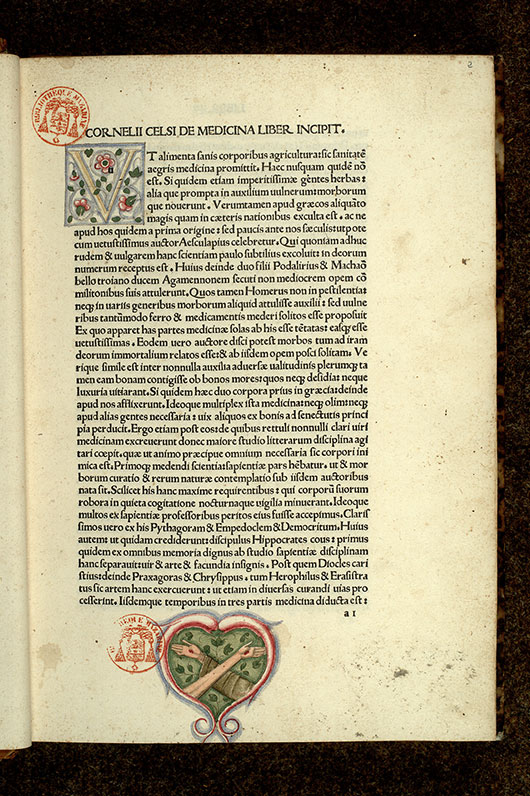 2
BIBLIOTHEQUE MAZARINE
CORNELII CELSI DE MEDICINA LIBER INCIPIT.
VT alimenta sanis corporibus agricultura: sic sanitatē
aegris medicina promittit. Haec nusquam quidē nō
est. Si quidem etiam imperitissimæ gentes herbas:
alia que prompta in auxilium uulnerum: morborum
que nouerunt. Verumtamen apud græcos aliquāto
magis quam in cæteris nationibus exculta est. ac ne
apud hos quidem a prima origine: sed paucis ante nos sæculis: utpote
cum uetustissimus auctor Aesculapius celebretur. Qui quoniam adhuc
rudem & uulgarem hanc scientiam paulo subtilius excoluit: in deorum
numerum receptus est. Huius deinde duo filii Podalirius & Machaō
bello troiano ducem Agamennonem secuti non mediocrem opem cō
militonibus suis attulerunt. Quos tamen Homerus non in pestilentia:
neq; in uariis generibus morborum aliquid attulisse auxilii: sed uulne
ribus tantūmodo ferro & medicamentis mederi solitos esse proposuit
Ex quo apparet has partes medicinæ solas ab his esse tētatas: easq; esse
uetustissimas. Eodem uero auctore disci potest morbos tum ad iram
deorum immortalium relatos esse: & ab iisdem opem posci solitam. Ve
rique simile est inter nonnulla auxilia aduersæ ualitudinis plerumq; ta
men eam bonam contigisse ob bonos mores: quos neq; desidia: neque
luxuria uitiarant. Si quidem hæc duo corpora prius in græcia: deinde
apud nos afflixerunt. Ideoque multiplex ista medicina: neq; olim: neq;
apud alias gentes necessaria: uix aliquos ex bonis ad senectutis princi
pia perducit. Ergo etiam post eos: de quibus rettuli nonnulli clari uiri
medicinam excreuerunt donec maiore studio litterarum disciplina agi
tari cœpit. quæ ut animo præcipue omnium necessaria sic corpori ini
mica est. Primoq; medendi scientia: sapientiæ pars hēbatur. ut & mor
borum curatio & rerum naturæ contemplatio sub iisdem auctoribus
nata sit. Scilicet his hanc maxime requirentibus: qui corporū suorum
robora in quieta cogitatione nocturnaque uigilia minuerant. Ideoque
multos ex sapientiæ professoribus peritos eius fuisse accepimus. Claris
simos uero ex his Pythagoram & Empedoclem & Democritum. Huius
autem: ut quidam crediderunt: discipulus Hippocrates cous: primus
quidem ex omnibus memoria dignus ab studio sapientiæ disciplinam
hanc separauit: uir & arte & facundia insignis. Post quem Diocles cari
stius: deinde Praxagoras & Chrysippus. tum Herophilus & Erasistra
tus sic artem hanc exercuerunt: ut etiam in diuersas curandi uias pro
cesserint. Iisdemque temporibus in tres partis medicina diducta est:
a1
BIBLIOTHEQUE MAZARINE